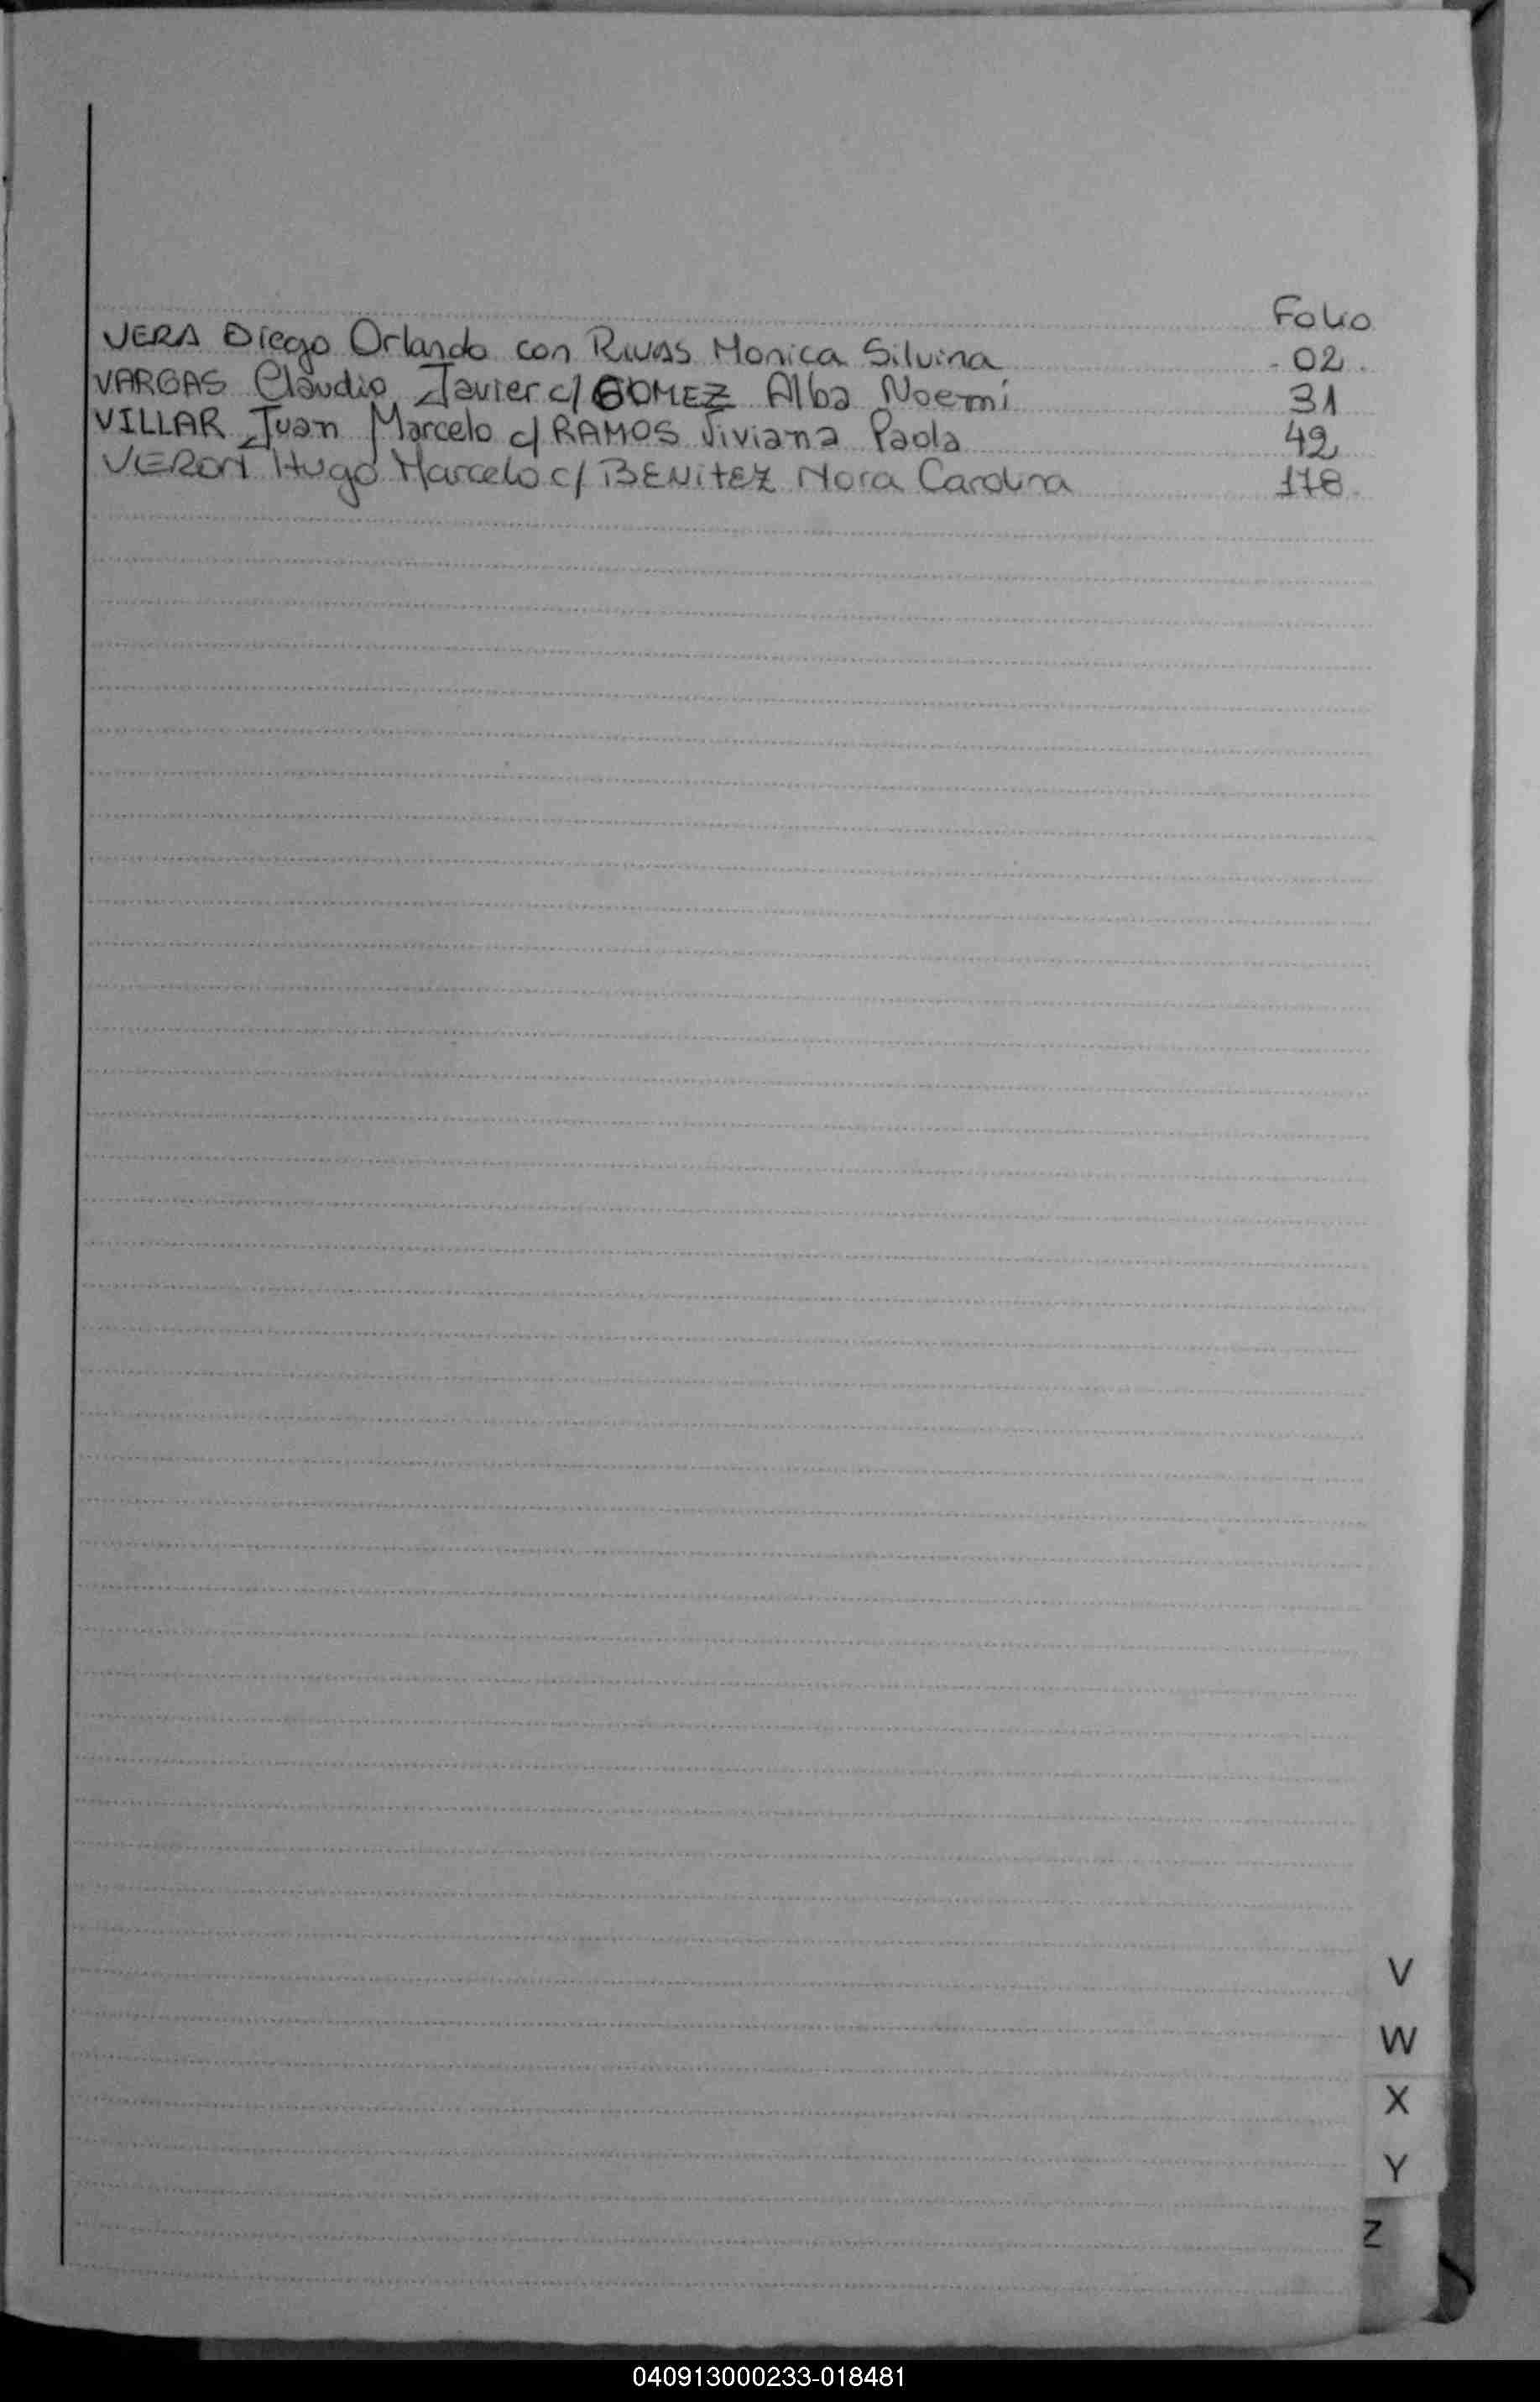 Folio
VERA Diego Orlando con RIVAS Monica Silvina 02
VARGAS Claudio Javier c/ GOMEZ Alba Noemi 31
VILLAR Juan Marcelo c/ RAMOS Viviana Paola 42
VERON Hugo Marcelo c/ BENITEZ Nora Carolina 178
V
W
X
Y
Z
040913000233-018481